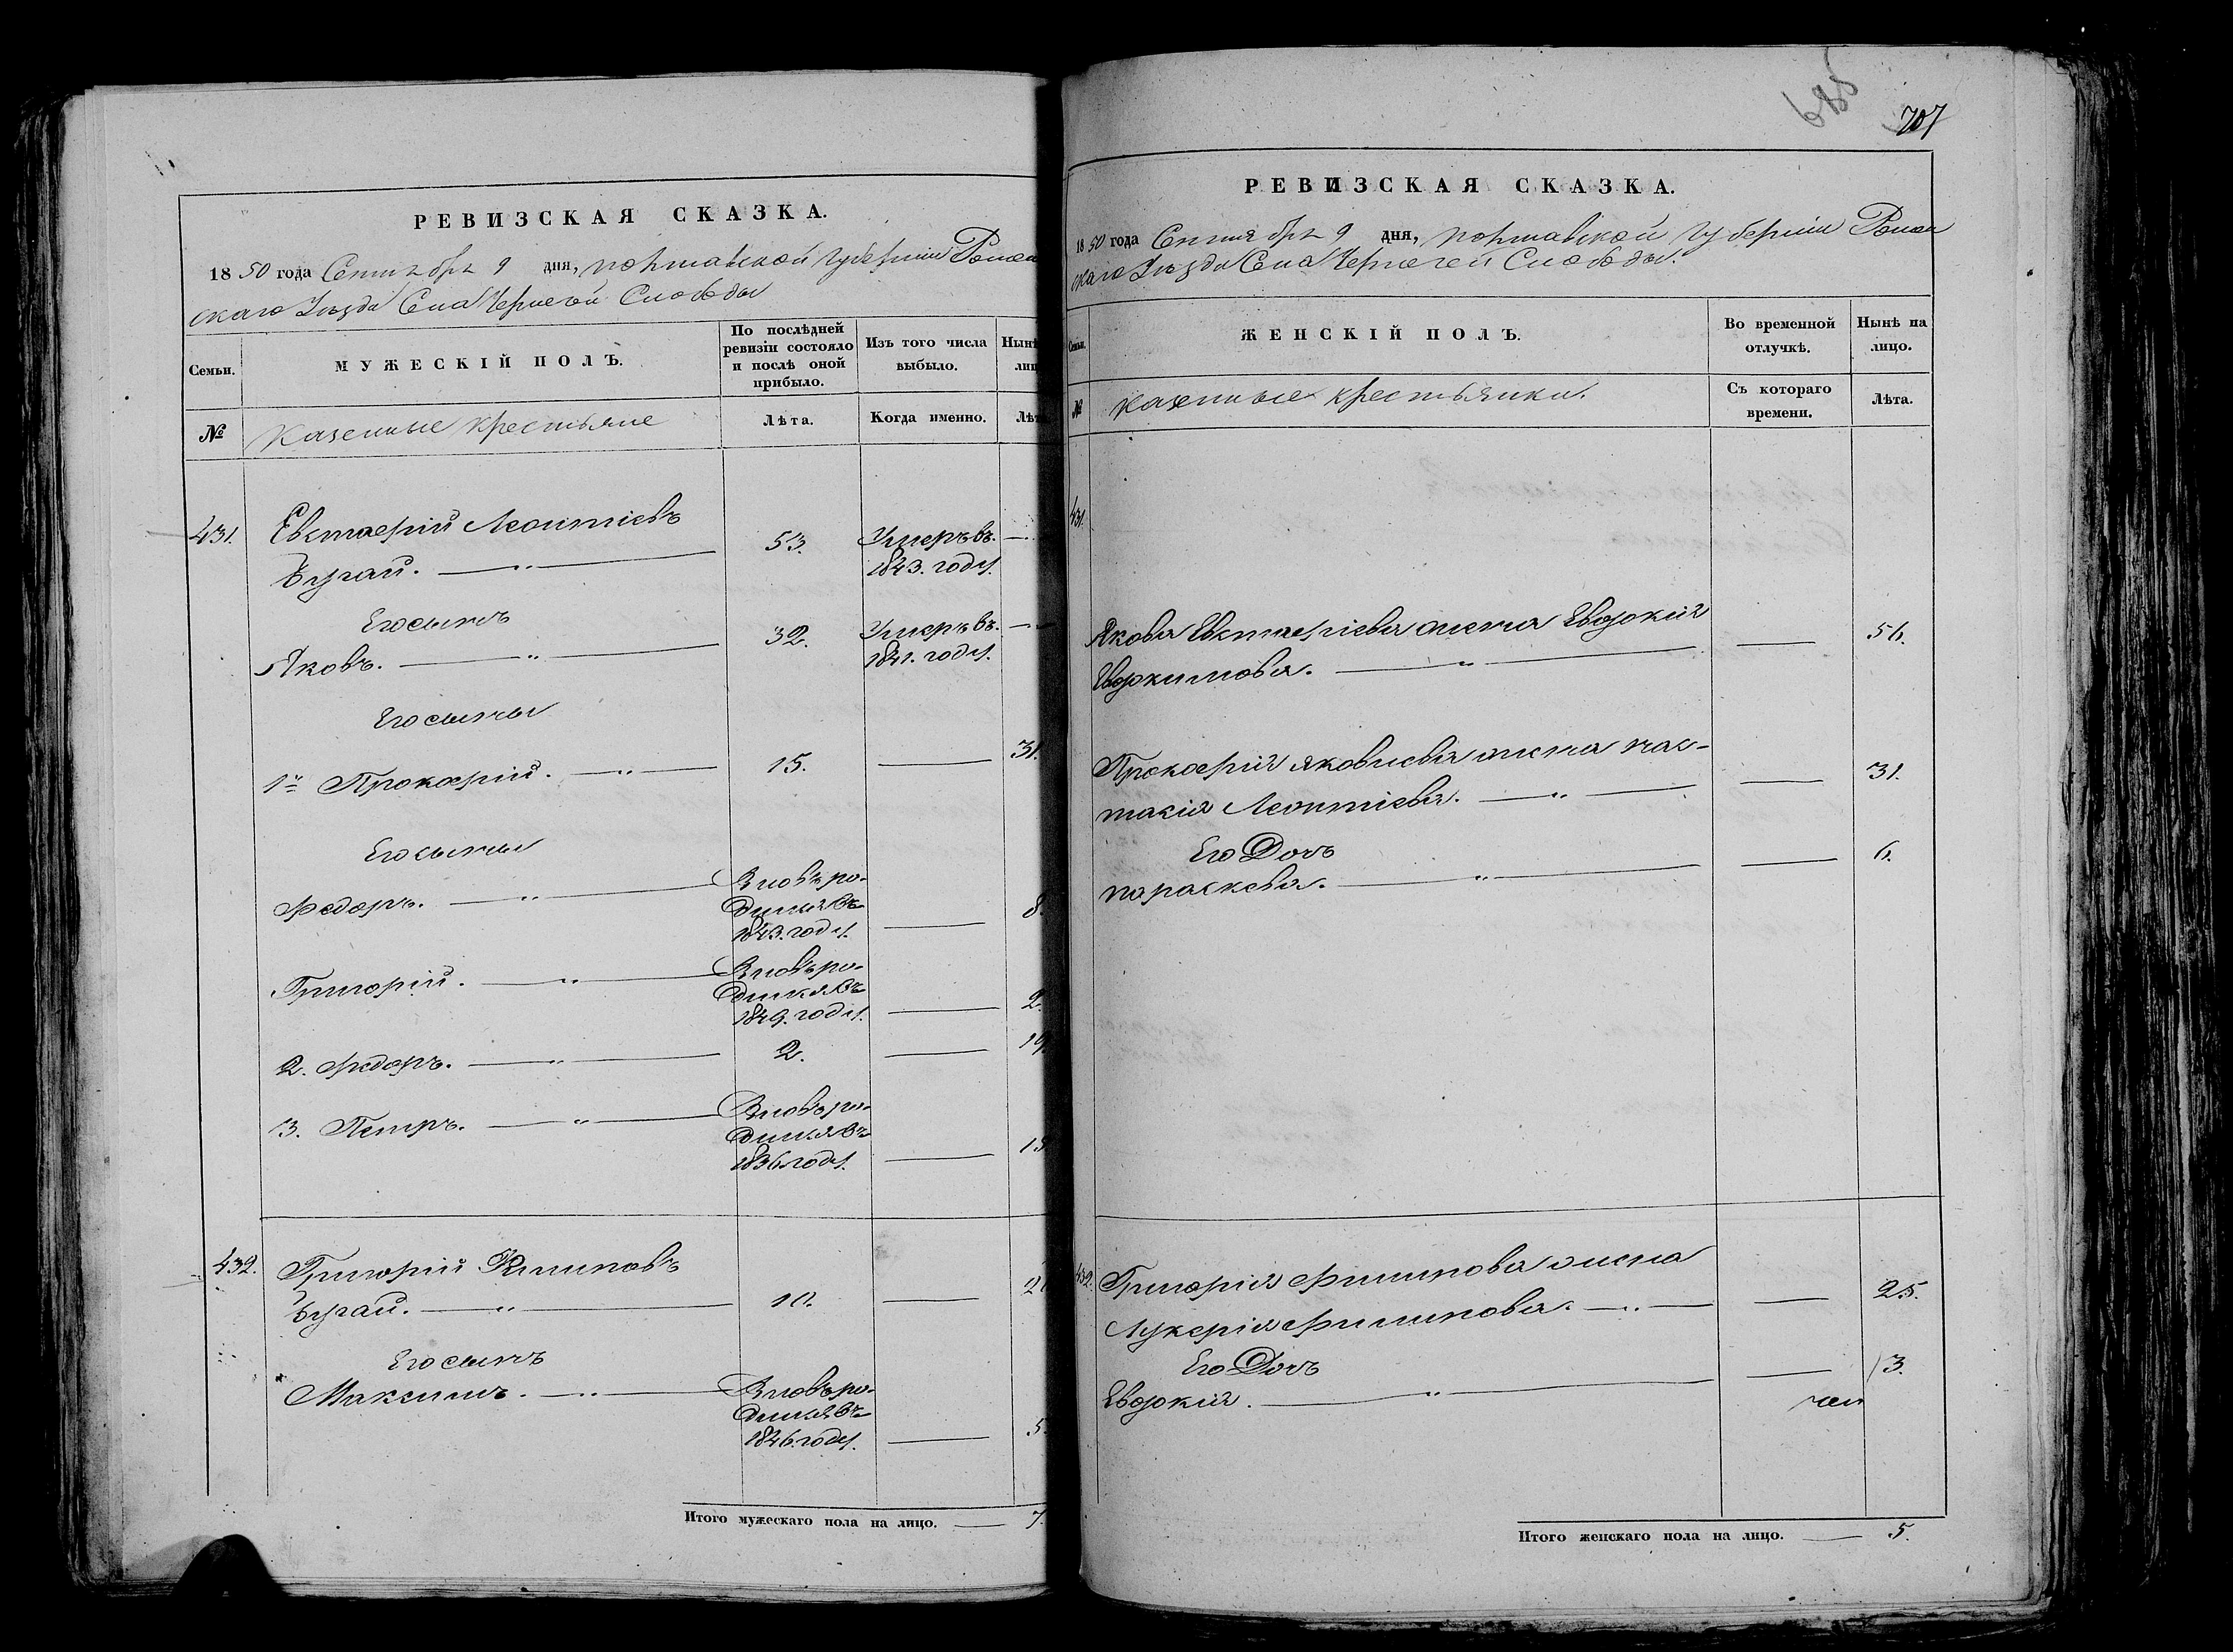 РЕВИЗСКАЯ СКАЗКА.
1850 года Сентября 9 дня, Полтавской Губернии Ромен
скаго Уѣзда Села Чернечей Слободы
Семьи.
МУЖЕСКІЙ ПОЛЪ.
По послѣдней ревизіи состояло и послѣ оной прибыло.
Изъ того числа выбыло.
Нынѣ
лиц
№
Казенные крестьяне
Лѣта.
Когда именно.
Лѣт
431. Евстафій Леонтіевъ
Бугай. 53. Умеръ въ 1843. году.
Его сынъ
Яковъ. 32. Умеръ въ 1841. году.
Его сыны
1й Прокофій. 15. 31.
Его сыны
Федоръ. Вновь родился въ 1843. году. 8.
Григорій. Вновь родился въ 1849. году. 2.
2. Федоръ. 2. 19.
3. Петръ. Вновь родился въ 1836 году. 15
432. Григорій Филиповъ
Бугай. 10. 2
Его сынъ
Максимъ. Вновь родился въ 1846. году. 5
Итого мужескаго пола на лицо. 7.
685
707
РЕВИЗСКАЯ СКАЗКА.
1850 года Сентября 9 дня, Полтавской Губерніи Ромен
скаго Уѣзда Села Чернечей Слободы.
Семьи.
ЖЕНСКІЙ ПОЛЪ.
Во временной отлучкѣ.
Нынѣ на лицо.
№
Казенные крестьянки.
Съ котораго времени.
Лѣта.
431.
Якова Евстафіева жена Евдокія
Евдокимова. 56.
Прокофія Яковлева жена Нас-
тасія Леонтіева. 31.
Его Дочь
Параскева. 6.
432. Григорія Филипова жена
Лукерія Филипова. 25.
Его Дочь
Евдокія. 3.
Итого женскаго пола на лицо. 5.